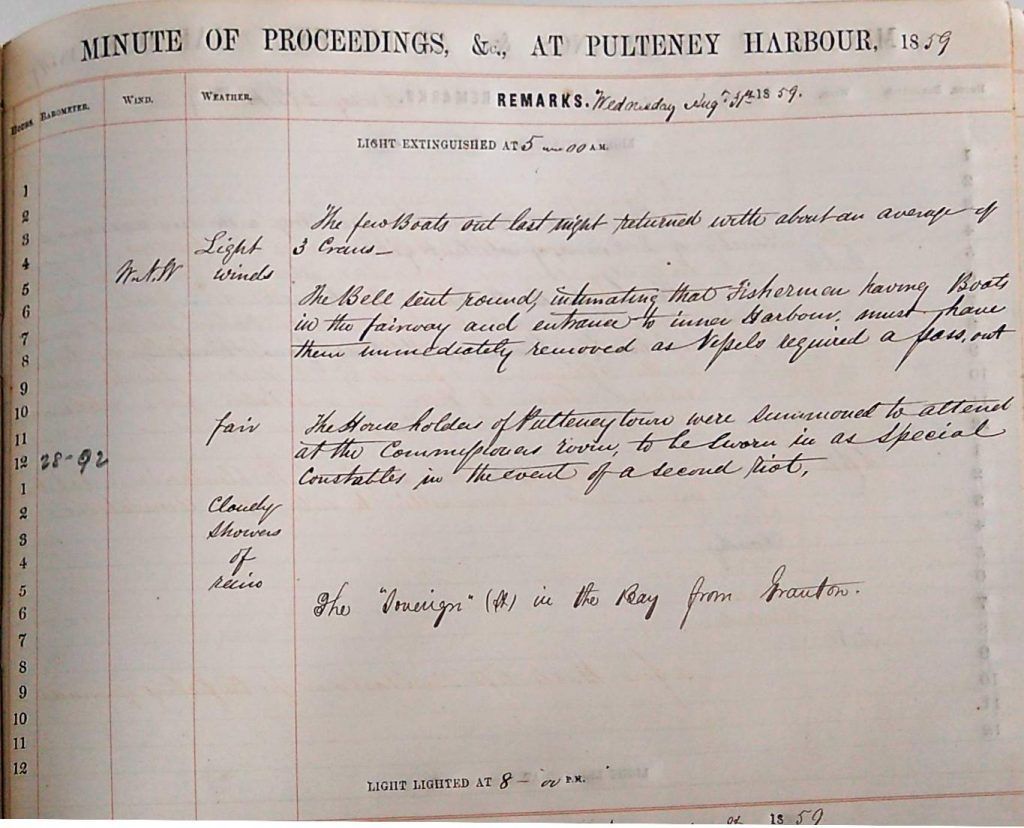 MINUTE OF PROCEEDINGS, &c., AT PULTENEY HARBOUR, 1859
HOURS. BAROMETER. WIND. WEATHER. REMARKS. Wednesday Augt 1859.
LIGHT EXTINGUISHED AT 5 — 00 A.M.
1
2 The few Boats out last night returned with about an average of
3 Light 3 Crans —
4 W.N.W winds
5 The Bell sent round, intimating that Fishermen having Boats
6 in the fairway and entrance to inner Harbour, must have
7 them immediately removed as Vessels required a pass, out
8
9
10 fair The Householders of Pulteneytown were summoned to attend
11 at the Commissioners room, to be sworn in as Special
12 28-92 Constables in the event of a second riot,
1
2 Cloudy
3 Showers
4 of
5 rain The "Soverign" (St) in the Bay from Granton.
6
7
8
9
10
11
12
LIGHT LIGHTED AT 8 — 00 P.M.
1859